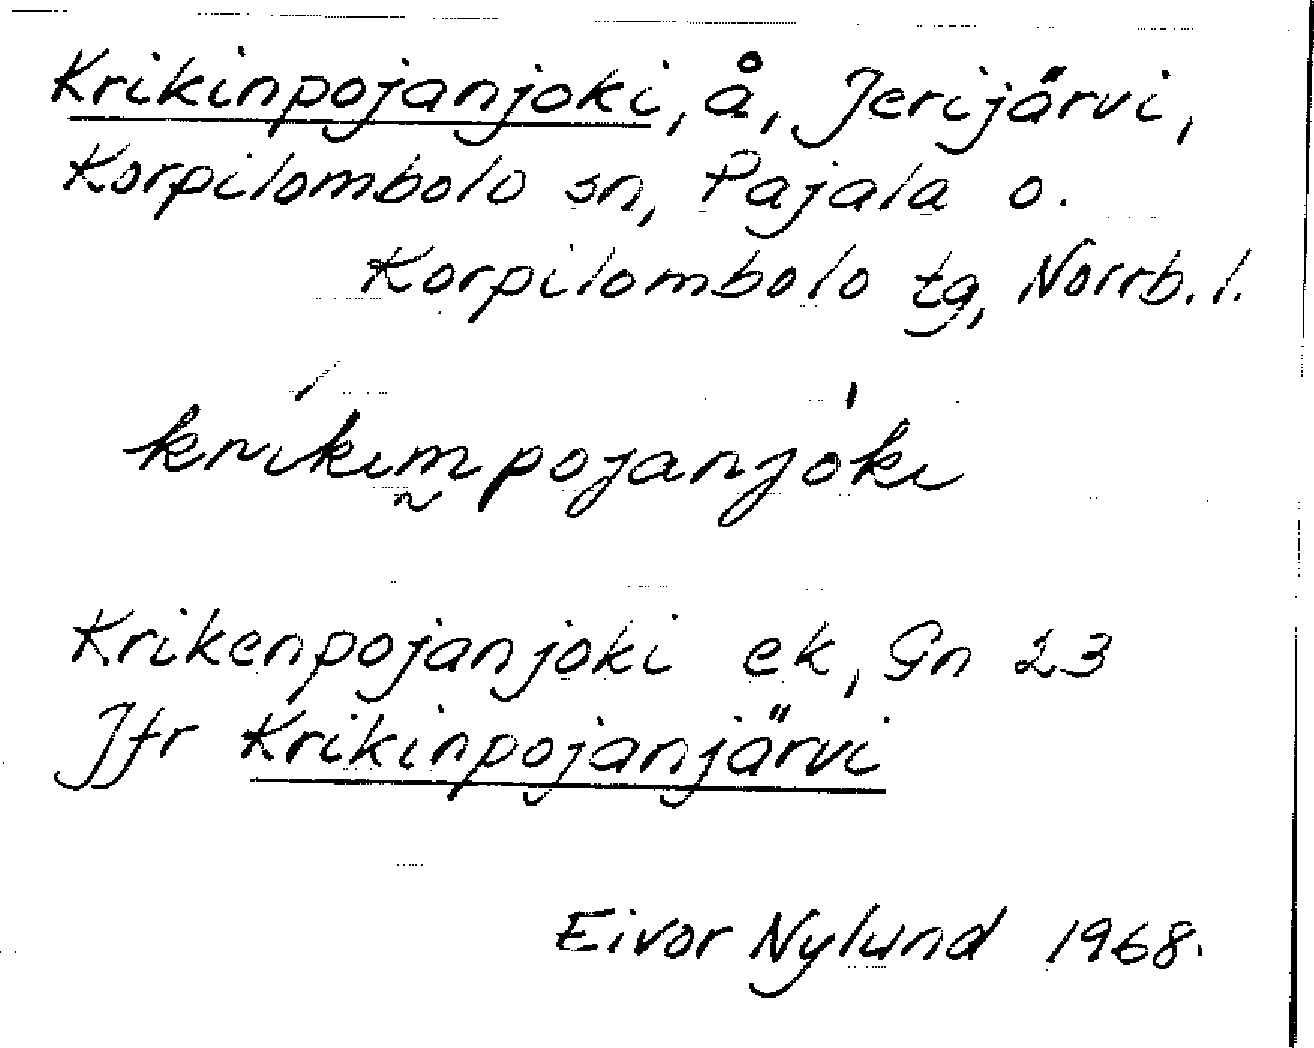 Krikinpojanjoki, å, Jerijärvi,
Korpilombolo sn, Pajala o.
Korpilombolo tg, Norrb. l.
krikim̰pojanjoki
Krikenpojanjoki ek, Gn 23
Jfr Krikinpojanjärvi
Eivor Nylund 1968.